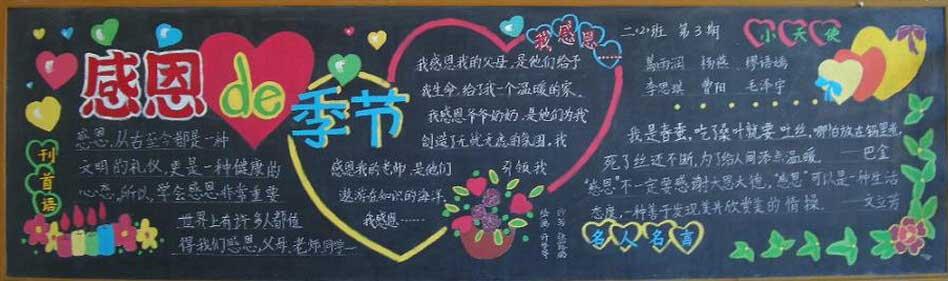 感恩de季节
刊首语
感恩,从古至今都是一种
文明的礼仪,更是一种健康的
心态,所以,学会感恩非常重要
世界上有许多人都值
得我们感恩,父母、老师同学…
我感恩……
我感恩我的父母,是他们给予
我生命,给了我一个温暖的家。
我感恩爷爷奶奶,是他们为我
创造了无忧无虑的氛围,我
感恩我的老师,是他们引领我
遨游在知识的海洋。
我感恩……
二·2班 第3期
小天使
葛雨润 杨燕 穆语嫣
李思琪 曹阳 毛泽宇
我是春蚕,吃了桑叶就要吐丝,哪怕放在锅里煮,
死了丝还不断,为了给人间添点温暖。——巴金
"感恩"不一定要感谢大恩大德,"感恩"可以是一种生活
态度,一种善于发现美并欣赏美的情操。
名人名言